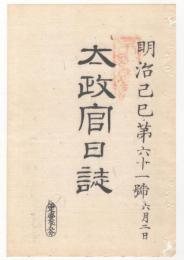 明治己巳第六十一號 六月二日
太政官日誌